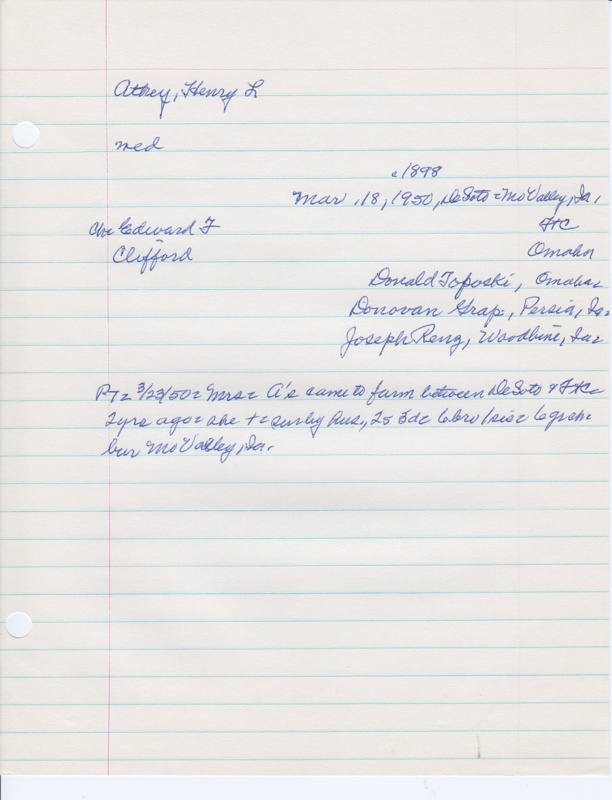 Attrey, Henry L
med
c1898
Mar. 18, 1950, DeSoto = Mo Valley, Ia.
chr Edward F
FtC
Clifford
Omaha
Donald Toposki, Omaha
Donovan Grap., Persia, Ia.
Joseph Reng, Woodbine, Ia.
PT= 3/23/50= Mrs= A's came to farm between DeSoto & FtC=
2yrs ago= she += surby hus., 2s 3d= 6bro 1sis= 6grch=
bur Mo Valley, Ia.